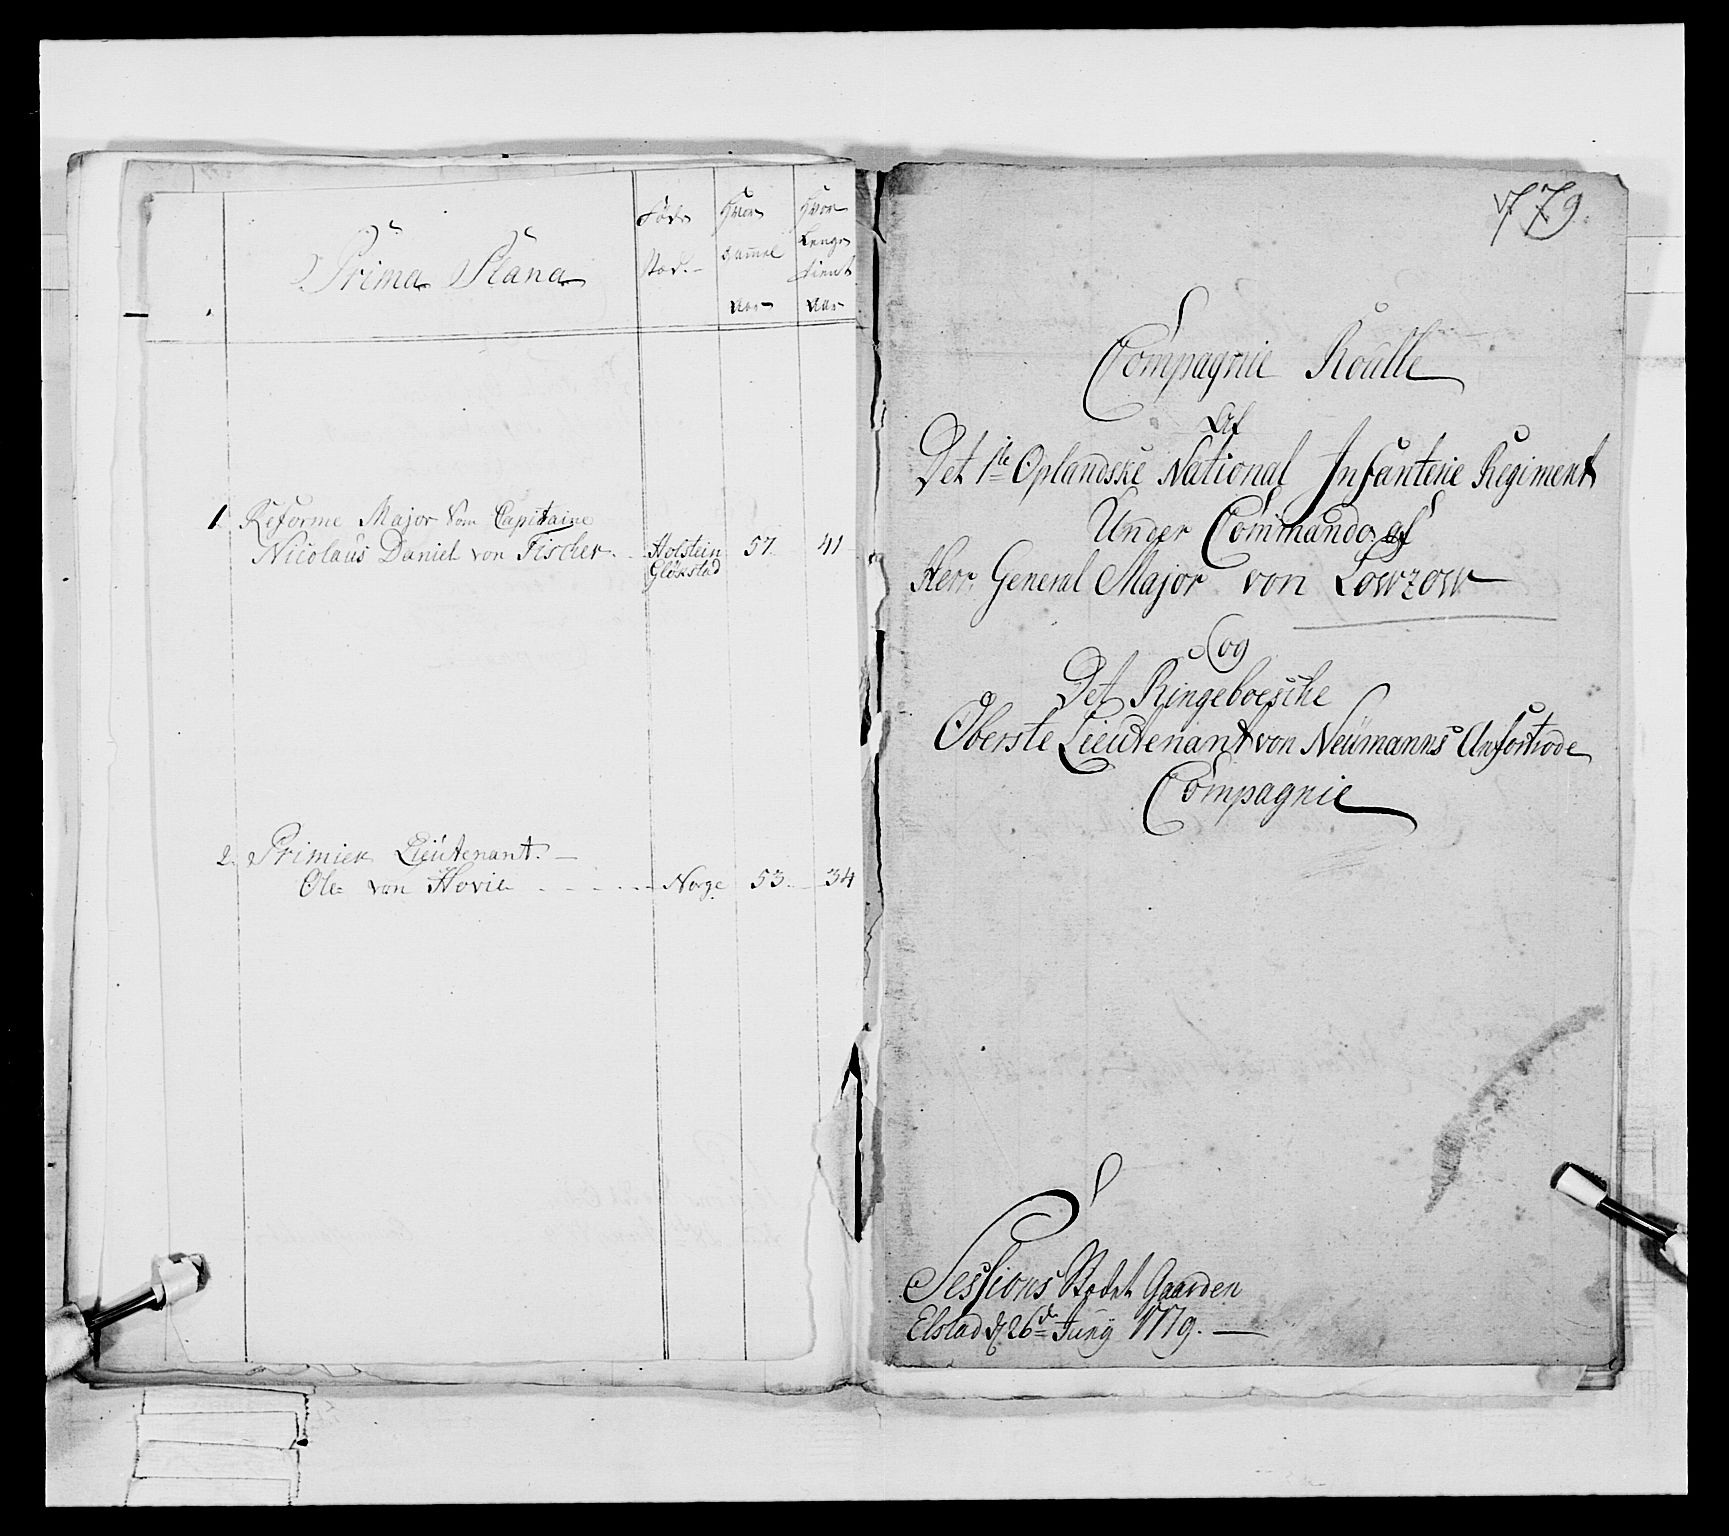 Prima Plana
Føde
Stæd.
Hvor
Gamel
Aar
Hvor
Lenge
tient
Aar
1. Reforme Major Som Capitaine
Nicolaus Daniel von Fischer. Holstein 57. 41
Glükstad
2. Primier Lieutenant. —
Ole von Hovie - - - - Norge 53. 34
779.
Compagnie Roulle
Af
Det 1te Oplandske National Infanterie Regiment
Under Commando af
Herr General Major von Lowzow
og
Det Ringeboesche
Oberste Lieutenant von Neümanns Anfortrode
Compagnie
Sessions Stædet Gaarden
Elstad d 26de Juny 1779. —